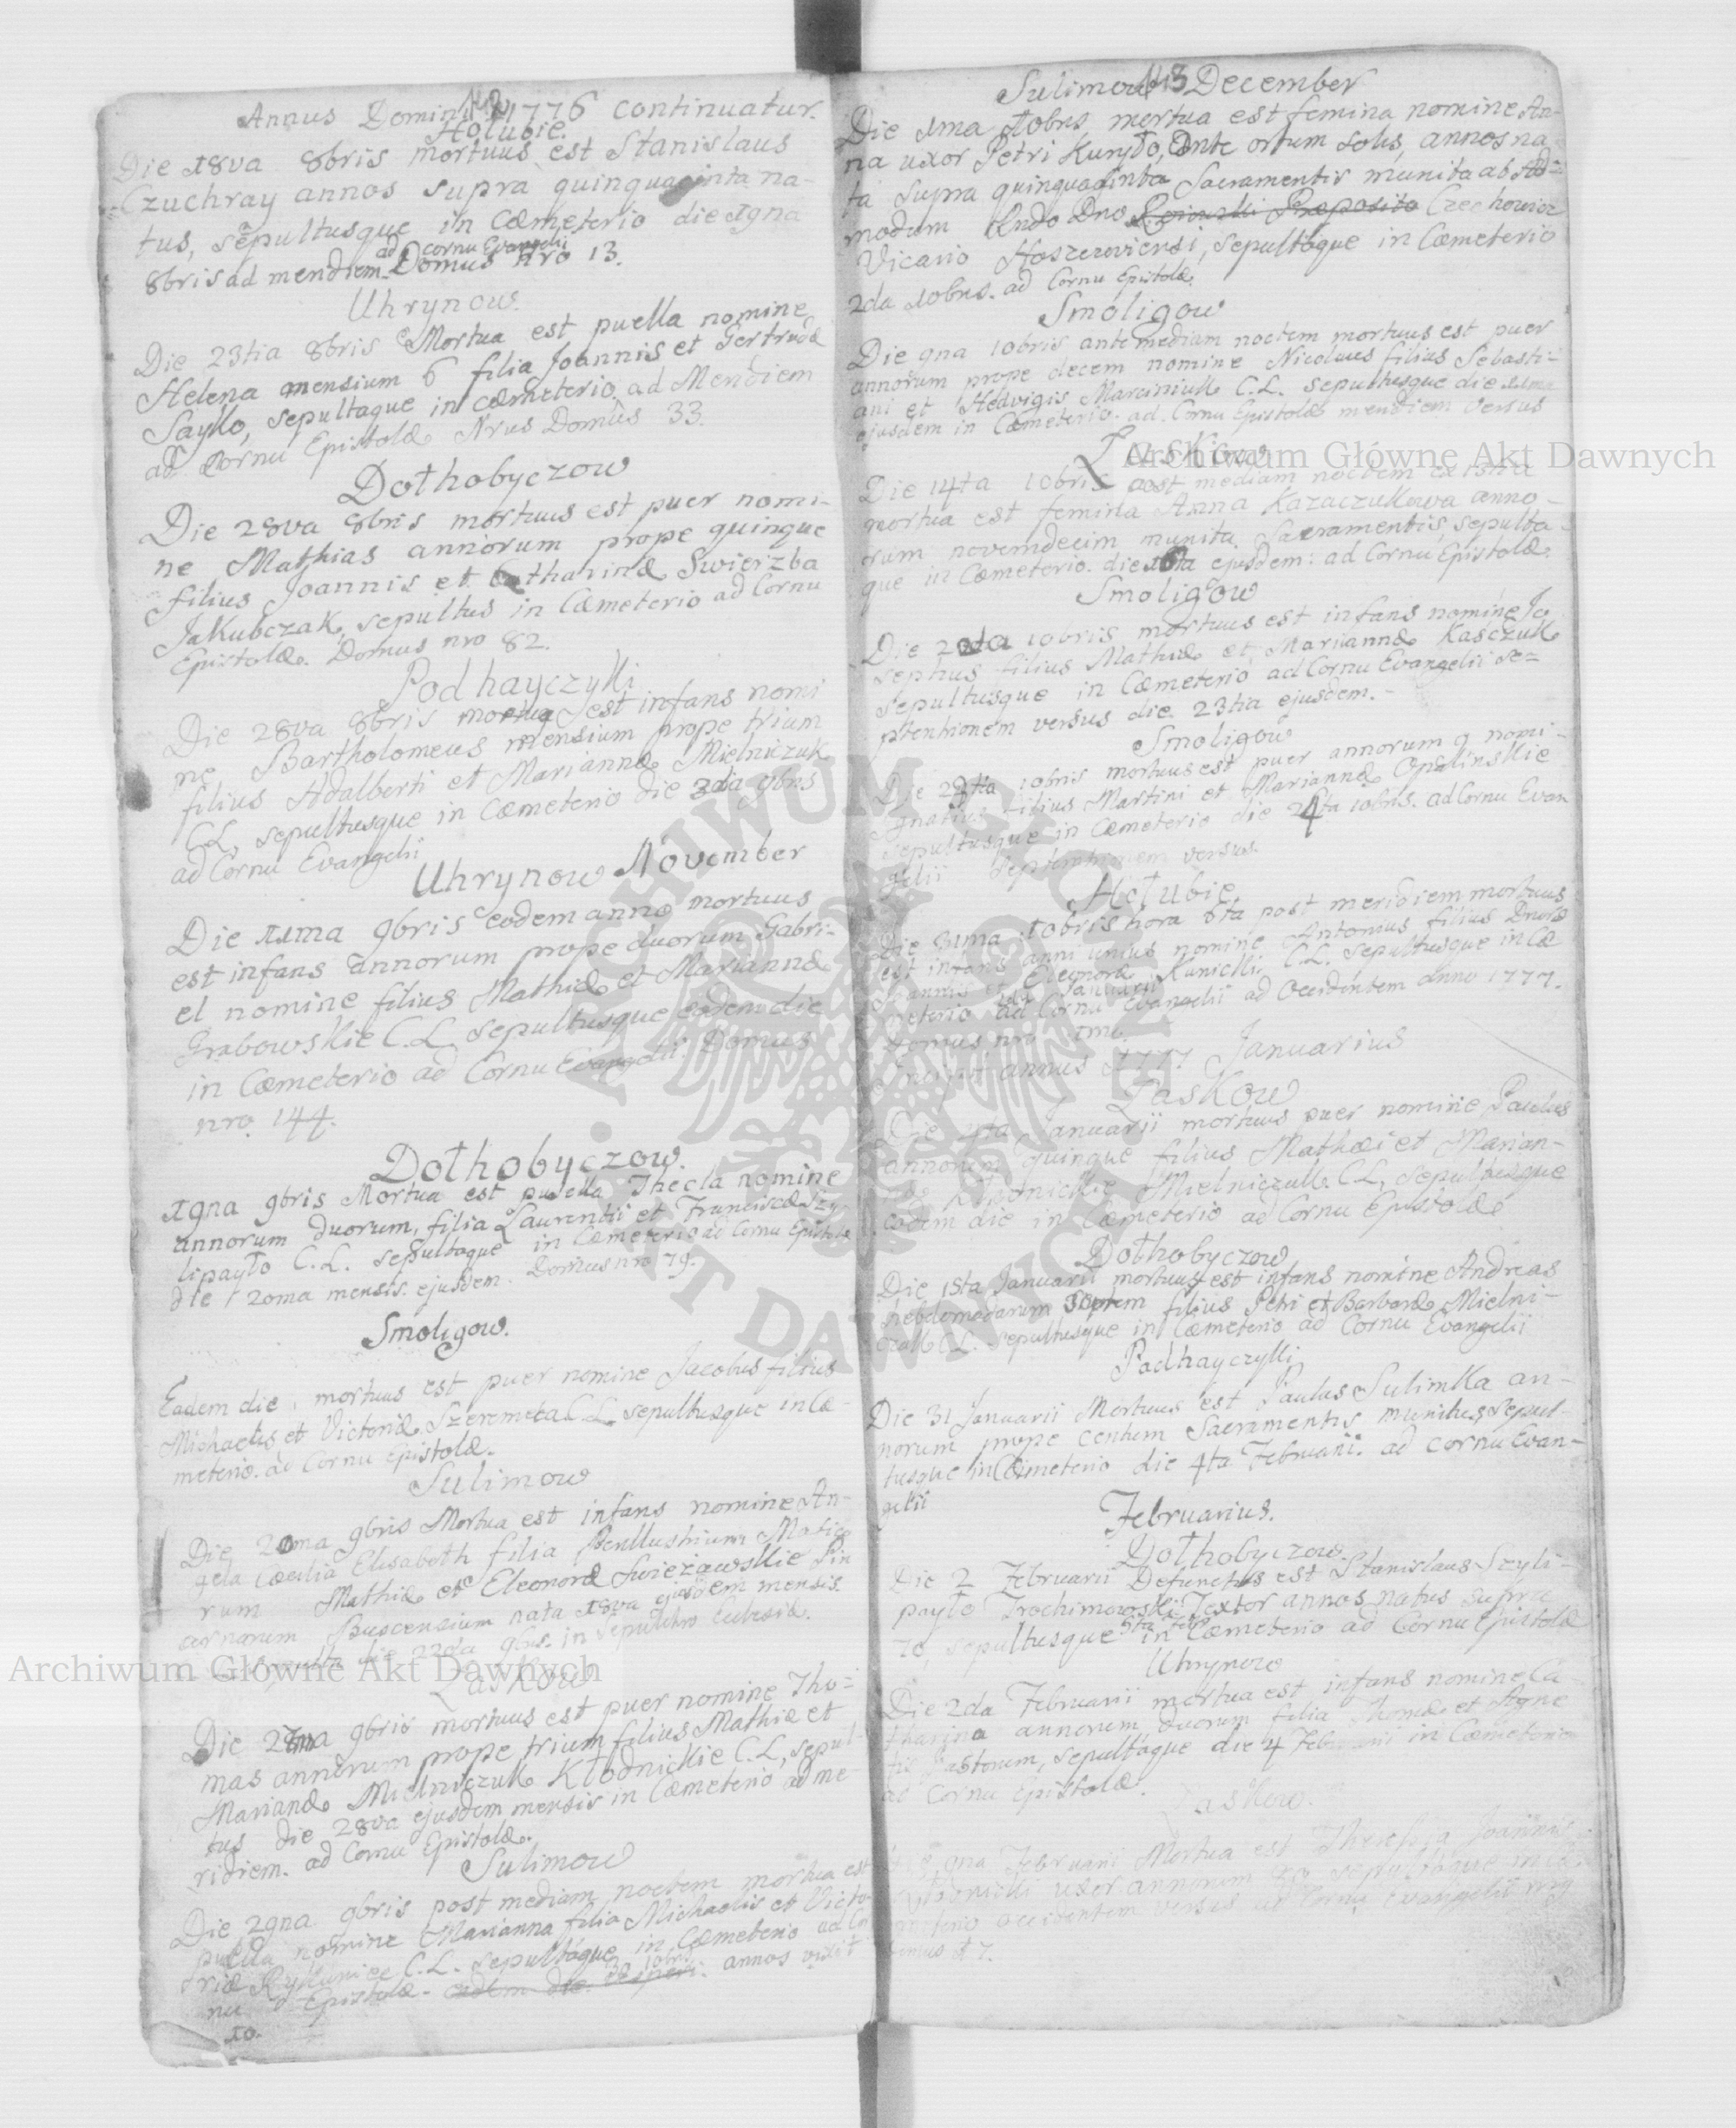 Annus Domini 1776 continuatur.
Hołubie.
Die 18va 8bris mortuus est Stanislaus
Czuchray annos supra quinquaginta na-
tus, sepultusque in Cæmeterio die 19na
8bris ad meridiem ad cornu Evangelii Domus nro 13.
Uhrynow.
Die 23tia 8bris Mortua est puella nomine
Helena mensium 6 filia Joannis et Gertrudæ
Sayko, sepultaque in cæmeterio ad Meridiem
ad Cornu Epistolæ Nrus Domûs 33.
Dołhobyczow
Die 28va 8bris mortuus est puer nomi-
ne Mathias annorum prope quinque
filius Joannis et Catharinæ Swierzba
Jakubczak, sepultus in Cæmeterio ad Cornu
Epistolæ. Domus nro 82.
Podhayczyki
Die 28va 8bris est infans nomi
ne Bartholomeus mensium prope trium
filius Adalberti et Mariannæ Mielniczuk
C.L. sepultusque in Cæmeterio die 9bris
ad Cornu Evangelii
Uhrynow November
Die 11ma 9bris eodem anno mortuus
est infans annorum prope duorum Gabri-
el nomine filius Mathiæ et Mariannæ
Grabowskie C.L. sepultusque eodem die
in Cæmeterio ad Cornu Evangelii. Domus
nro 144.
Dołhobyczow.
19na 9bris Mortua est puella Thecla nomine
annorum duorum, filia Laurentii et Franciscæ Szy-
lipayło C.L. sepultaque in Cæmeterio ad Cornu Epistolæ
die 20ma mensis ejusdem. Domus nro 79.
Smoligow.
Eadem die, mortuus est puer nomine Jacobus filius
Michaelis et Victoriæ Szeremeta C.L. sepultusque in Cæ-
meterio. ad Cornu Epistolæ.
Sulimow
Die 20ma 9bris Mortua est infans nomine An-
gela Cæcilia Elisabeth filia Perillustrium Magico
rum Mathiæ et Eleonoræ Swieżawskie Pin
arnarum Buscensium nata 18va ejusdem mensis.
die 22da 9bris in sepulchro Ecclesiæ.
Łaskow
Die 27ma 9bris mortuus est puer nomine Tho-
mas annorum prope trium filius Mathiæ et
Mariannæ Mielniczuk Kłodnickie C.L., sepul-
tus die 28va ejusdem mensis in Cæmeterio ad me-
ridiem. ad Cornu Epistolæ.
Sulimow
Die 29na 9bris post mediam noctem mortua est
puella nomine Marianna filia Michaelis et Victo-
riæ C.L. sepultaque in Cæmeterio ad Cor
nu Epistolæ. eadem die 10bris annos vixit
10.
Sulimow December
Die 1ma 10bris mortua est femina nomine An-
na uxor Petri Kuryło, Ante ortum solis, annos na-
ta supra quinquaginta Sacramentis munita ab Ad-
modum Rndo Dno Præposito Czechowicz
Vicario Hoszczoviensi, sepultaque in Cæmeterio
2da 10bris. ad Cornu Epistolæ
Smoligow
Die 9na 10bris ante mediam noctem mortuus est puer
annorum prope decem nomine Nicolaus filius Sebasti-
ani et Hedvigis Marciniuk C.L. sepultusque die 11ma
ejusdem in Cæmeterio. ad. Cornu Epistolæ meridiem versus
Łaskow
Die 14ta 10bris post mediam noctem
mortua est femina Anna Kazaczukowa anno-
rum novemdecim munita Sacramentis, sepulta-
que in Cæmeterio. die 16ta ejusdem: ad Cornu Epistolæ.
Smoligow
Die 10bris mortuus est infans nomine Jo
sephus filius Mathiæ et Mariannæ Kaśczuk
sepultusque in Cæmeterio ad Cornu Evangelii se-
ptentrionem versus die 23tia ejusdem.
Smoligow
Die 23tia 10bris mortuus est puer annorum 9 nomi-
ne Ignatius filius Martini et Mariannæ Opolinskie
sepultusque in Cæmeterio die 24ta 10bris. ad Cornu Evan
gelii Septemtrionem versus.
Hołubie
Die 31ma 10bris hora 6ta post meridiem mortuus
est infans anni unius nomine Antonius filius Dnorum
Joannis et Eleonoræ Kunicki C.L. sepultusque in Cæ
meterio Januarii ad Cornu Evangelii ad Occidentem anno 1777.
Domus nro
Incipit annus 1777 Januarius
Łaskow
Die Januarii mortuus puer nomine Paulus
annorum quinque filius Mathæi et Marian-
næ Mielniczuk C.L. sepultusque
eodem die in Cæmeterio ad Cornu Epistolæ
Dołhobyczow
Die 15ta Januarii mortuus est infans nomine Andreas
hebdomadarum septem filius Petri et Barbaræ Mielni-
czuk C.L. sepultusque in Cæmeterio ad Cornu Evangelii
Podhayczyki
Die 31 Januarii Mortuus est Paulus Sulimka an-
norum prope centum Sacramentis munitus, sepul-
tusque in Cæmeterio die 4ta Februarii. ad cornu Evan-
gelii
Februarius.
Dołhobyczow.
Die 2 Februarii Defunctus est Stanislaus Szyli-
payło Trochimowski Textor annos natus supra
70, sepultusque 5ta in Cæmeterio ad Cornu Epistolæ
Uhrynow
Die 2da Februarii mortua est infans nomine Ca-
tharina annorum duorum filia Thomæ et Agne
tis Pastorum, sepultaque die 4 Februarii in Cæmeterio
ad Cornu Epistolæ.
Łaskow.
Die 9na Februarii Mortua est Theressia Joannis
uxor annorum 50 sepultaque in Cæ
meterio occidentem versus ad Cornu Evangelii nro
domus 17.
Archiwum Główne Akt Dawnych
Archiwum Główne Akt Dawnych
ARCHIWUM GŁÓWNE AKT DAWNYCH